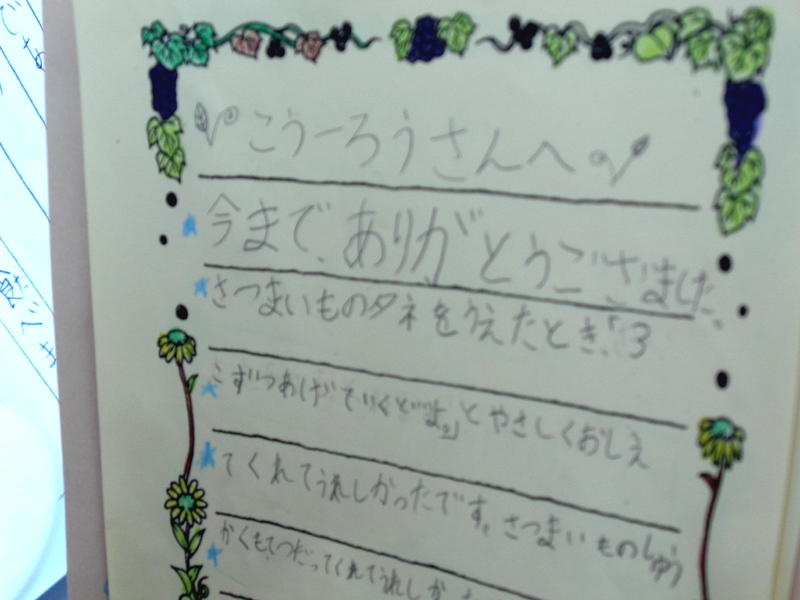 こうーろうさんへ
今まで、ありがとうございました。
さつまいものタネをうえたとき、「3
こずつあげていくどよ。」とやさしくおしえ
てくれてうれしかったです。さつまいものしゅう
かくもてつだってくれてうれしか